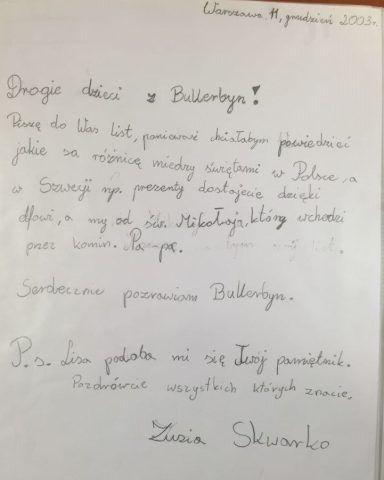 Warszawa 11, grudzień 2003r.
Drogie dzieci z Bullerbyn!
Piszę do Was list, ponieważ chciałabym powiedzieć
jakie są różnicę między świętami w Polsce, a
w Szwecji np. prezenty dostajecie dzięki
dłowi, a my od św. Mikołaja, który wchodzi
przez komin. Pa pa.
Serdecznie pozrawiam Bullerbyn.
P.s. Lisa podoba mi się Twój pamiętnik.
Pozdrówcie wszystkich których znacie.
Zuzia Skwarko